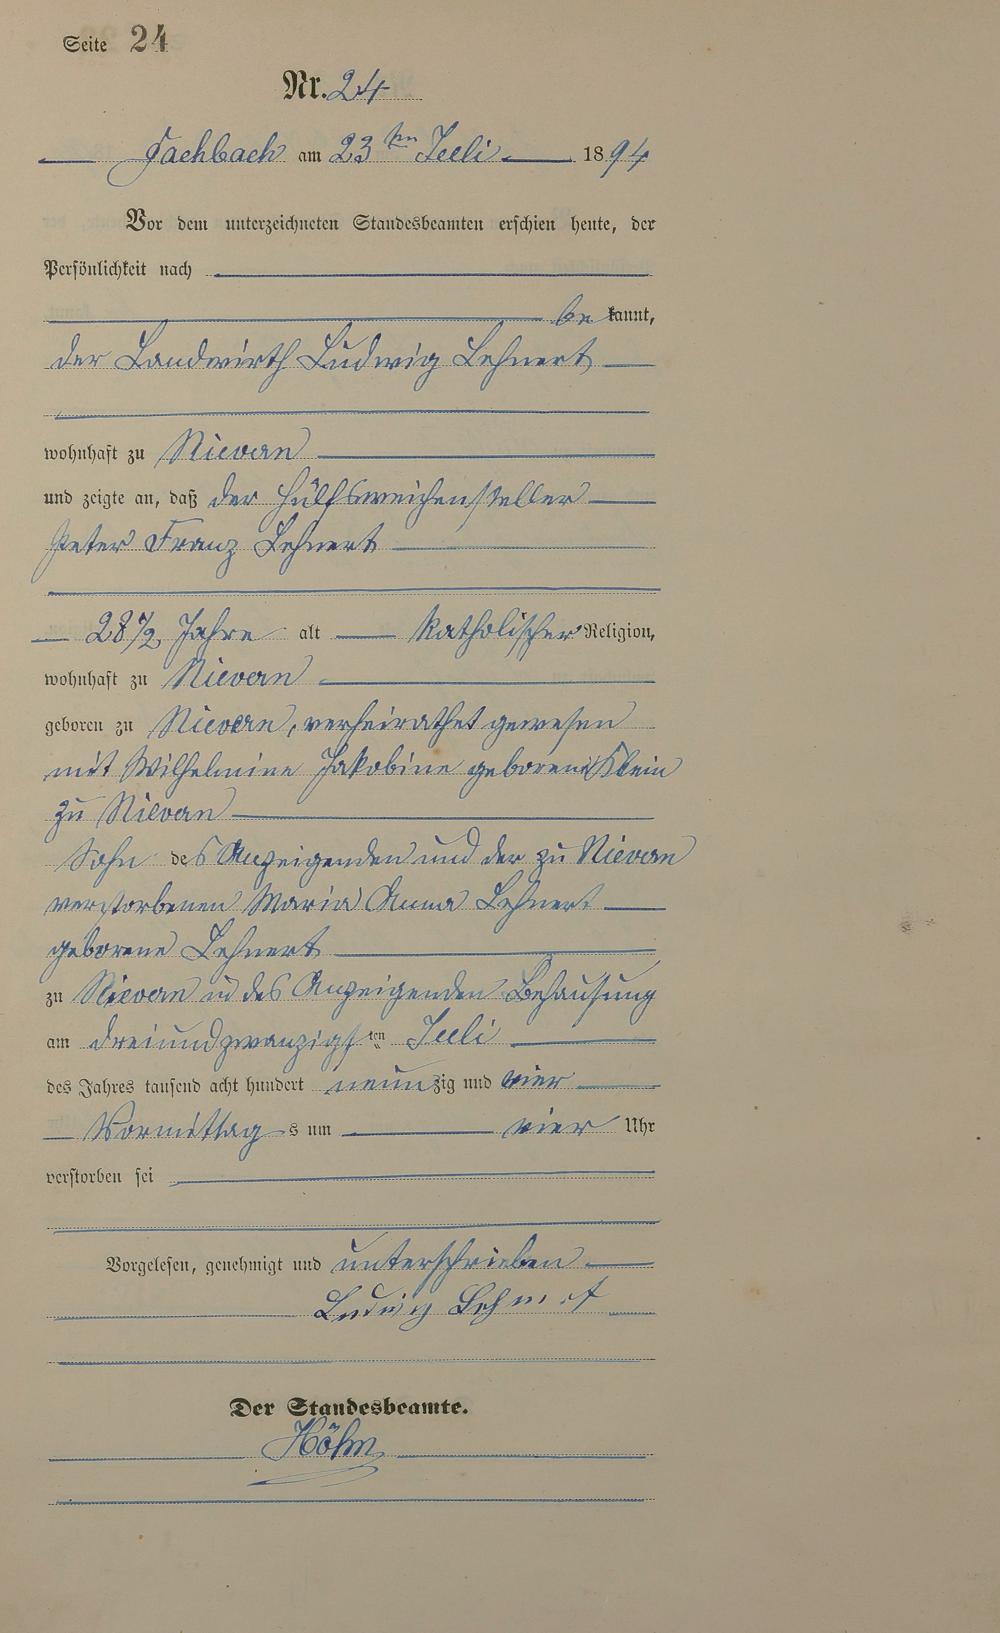 Seite 24
Nr. 24
Fachbach am 23ten Juli 1894
Vor dem unterzeichneten Standesbeamten erschien heute, der
Persönlichkeit nach
bekannt,
der Landwirth Ludwig Lehnert
wohnhaft zu Nievern
und zeigte an, daß der Hülfsweichensteller
Peter Franz Lehnert
28 1/2 Jahre alt katholischer Religion,
wohnhaft zu Nievern
geboren zu Nievern, verheirathet gewesen
mit Wilhelmine Jakobine geborene Klein
zu Nievern
Sohn des Anzeigenden und der zu Nievern
verstorbenen Maria Anna Lehnert
geborene Lehnert
zu Nievern in des Anzeigenden Behausung
am dreiundzwanzigsten Juli
des Jahres tausend acht hundert neunzig und vier
Vormittags um vier Uhr
verstorben sei
Vorgelesen, genehmigt und unterschrieben
Ludwig Lehnert
Der Standesbeamte.
Höhn